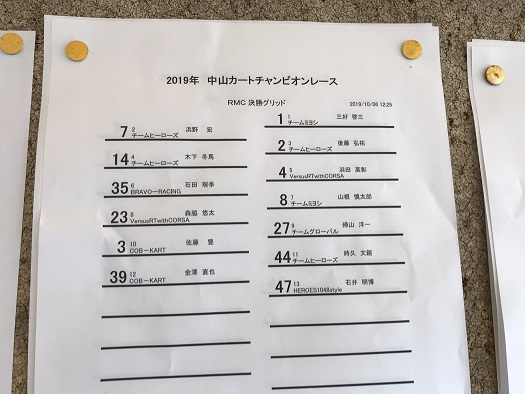 2019年 中山カートチャンピオンレース
RMC 決勝グリッド 2019/10/06 12:29
1 1 三好 啓三
チームミヨシ
7 2 浜野 宏
チームヒーローズ
2 3 後藤 弘祐
チームヒーローズ
14 4 木下 冬馬
チームヒーローズ
4 5 浜田 高彰
VersusRTwithCORSA
35 6 石田 翔季
BRAVO―RACING
8 7 山根 慎太郎
チームミヨシ
23 8 森脇 悠太
VersusRTwithCORSA
27 9 帰山 洋一
チームグローバル
3 10 佐藤 豊
COB-KART
44 11 時久 文親
チームヒーローズ
39 12 金澤 直也
COB-KART
47 13 石井 明博
HEROES1048style